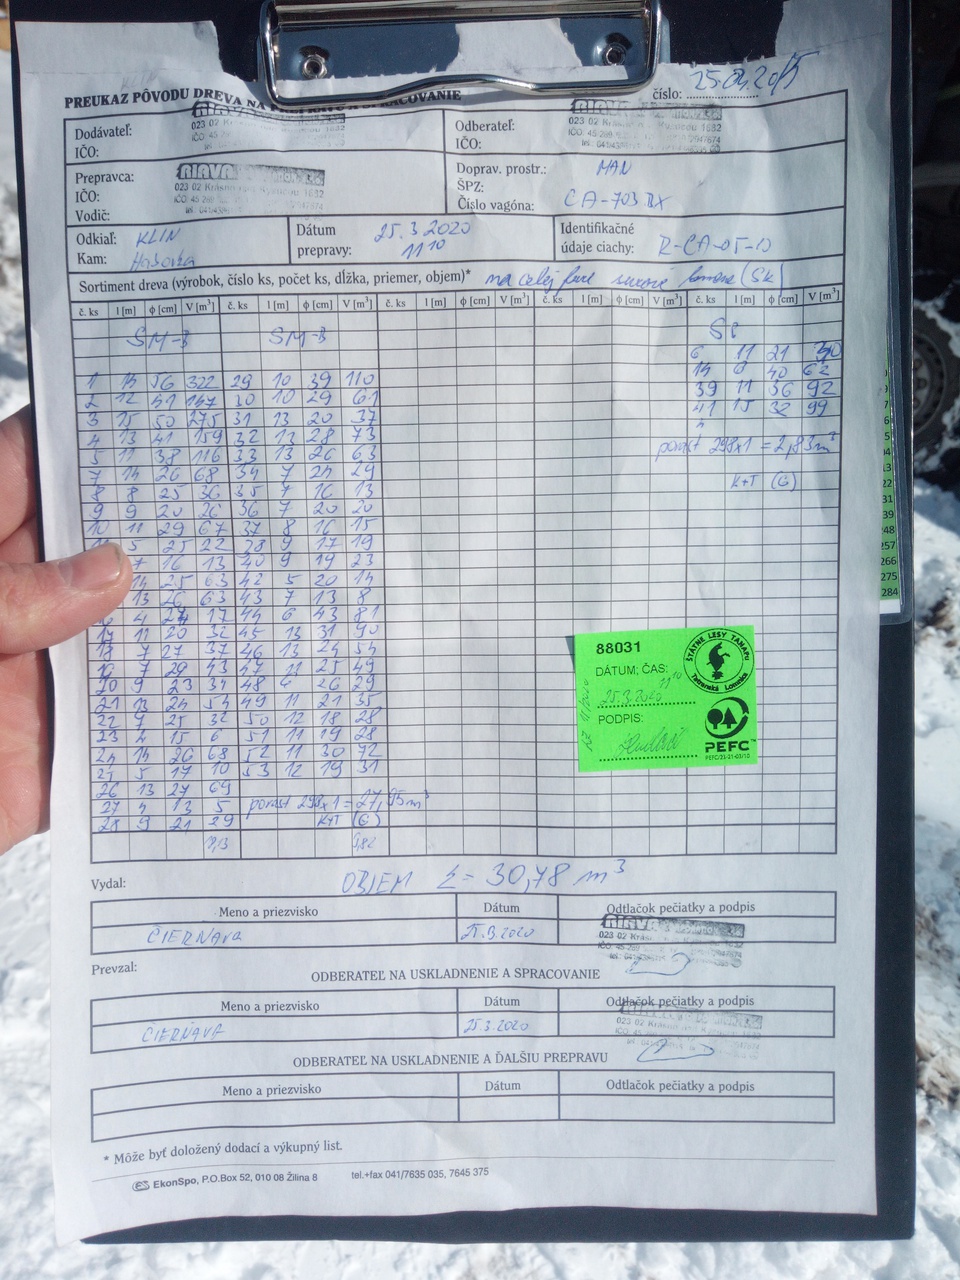 PREUKAZ PÔVODU DREVA NA
SPRACOVANIE
číslo:
Dodávateľ:
IČO:
023 02 Krásno
Odberateľ:
IČO:
Prepravca:
IČO:
Vodič:
RIAVA
023 02 Krásno
Doprav. prostr.: MAN
ŠPZ:
Číslo vagóna: CA-703BX
Odkiaľ: KLIN
Kam:
Dátum
prepravy: 25.3.2020
11 10
Identifikačné
údaje ciachy: R-CA-05-10
Sortiment dreva (výrobok, číslo ks, počet ks, dĺžka, priemer, objem)*
č. ks l [m] ϕ [cm] V [m³] č. ks l [m] ϕ [cm] V [m³] č. ks l [m] ϕ [cm] V [m³] č. ks l [m] ϕ [cm] V [m³] č. ks l [m] ϕ [cm] V [m³]
SM-B SM-B
6 11 21
14 8 40 62
39 11 36 92
41 15 32 99
1 14 56 322 29 10 39 110
2 12 41 147 30 10 29 61
3 15 50 275 31 13 20 37
4 13 41 159 32 13 28 73
5 11 38 116 33 13 26 63
7 14 26 68 34 7 24 29
8 8 25 36 35 7 16 13
9 9 20 26 36 7 20 20
10 11 29 67 37 8 16 15
5 25 22 38 9 17 19
7 16 13 40 9 19 23
14 25 63 42 5 20 14
13 26 63 43 7 13 8
4 17 44 6 43 81
17 11 20 32 45 13 31 90
18 7 27 37 46 13 24 54
19 7 29 43 47 11 25 49
20 9 23 34 48 6 26 29
21 13 24 54 49 11 21 35
22 9 25 32 50 12 18 28
23 4 15 6 51 11 19 28
24 14 26 68 52 11 30 72
5 17 10 53 12 19 31
26 13 27 69
27 4 13 5 porast 298x1 = 27,95m³
28 9 21 29 K+T (G)
porast 298x1 = 2,83m³
K+T (G)
88031
DÁTUM; ČAS:
11 10
25.3.2020
PODPIS:
ŠTÁTNE LESY TANAPU
Tatranská Lomnica
PEFC
PEFC/23-21-03/10
257
266
275
284
Vydal:
OBJEM Σ = 30,78 m³
Meno a priezvisko Dátum Odtlačok pečiatky a podpis
ČIERNAVA 25.3.2020
Prevzal:
ODBERATEĽ NA USKLADNENIE A SPRACOVANIE
Meno a priezvisko Dátum Odtlačok pečiatky a podpis
ČIERNAVA 25.3.2020
ODBERATEĽ NA USKLADNENIE A ĎALŠIU PREPRAVU
Meno a priezvisko Dátum Odtlačok pečiatky a podpis
* Môže byť doložený dodací a výkupný list.
EkonSpo, P.O.Box 52, 010 08 Žilina 8 tel.+fax 041/7635 035, 7645 375